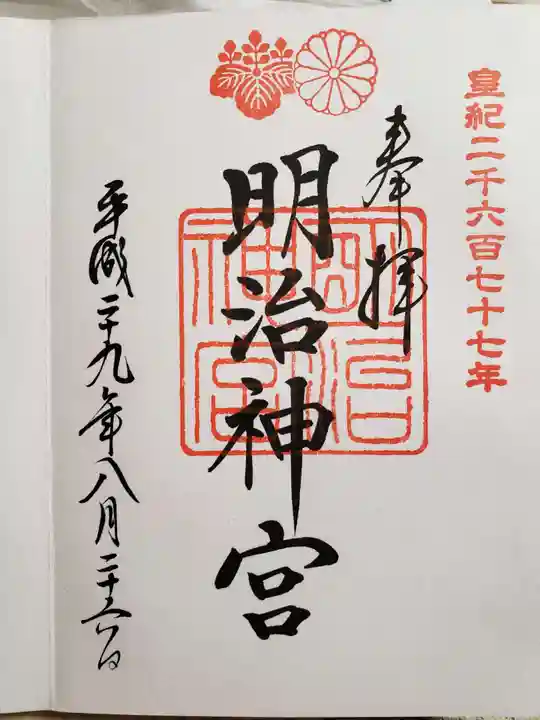 皇紀二千六百七十七年
奉拝
明治神宮
明治神宮
平成二十九年八月二十六日